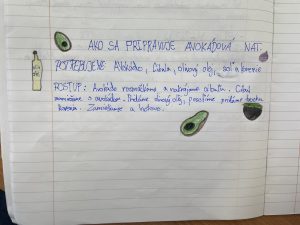 AKO SA PRIPRAVUJE AVOKÁDOVÁ NÁT.
POTREBUJEME Avokádo, Cibuľa, olivový olej, soľ a korenie
POSTUP: Avokádo rozmačkáme a nakrájame cibuľu. Cibuľ
zmiešame s avokádom. Pridáme olivový olej, posolíme pridáme trochu
korenia. Zamiešame a hotovo.